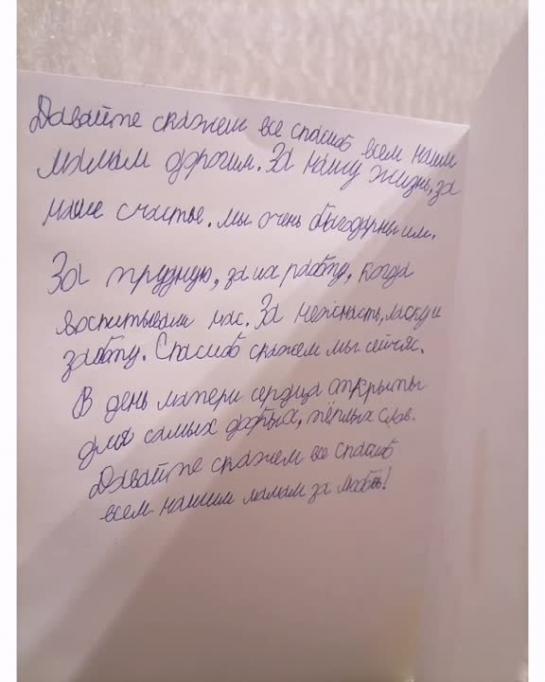 Давайте скажем все спасиб всем нашим
мамам дорогим. За нашу жизнь, за
наше счастье. мы очень благодарны им.
За трудную, за их работу, когда
воспитывали нас. За нежнасть, ласку и
заботу. Спасиб скажем мы сейчас.
В день матери сердца открыты
для самых добрых, тёплых слов.
Давайте скажем все спасиб
всем нашим мамам за любовь!